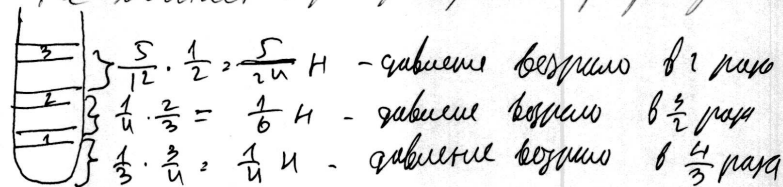 3 } 5/12 · 1/2 = 5/24 H - давление возрасло в 2 раза
2 } 1/4 · 2/3 = 1/6 H - давление возрасло в 3/2 раза
1 } 1/3 · 3/4 = 1/4 H - давление возрасло в 4/3 раза